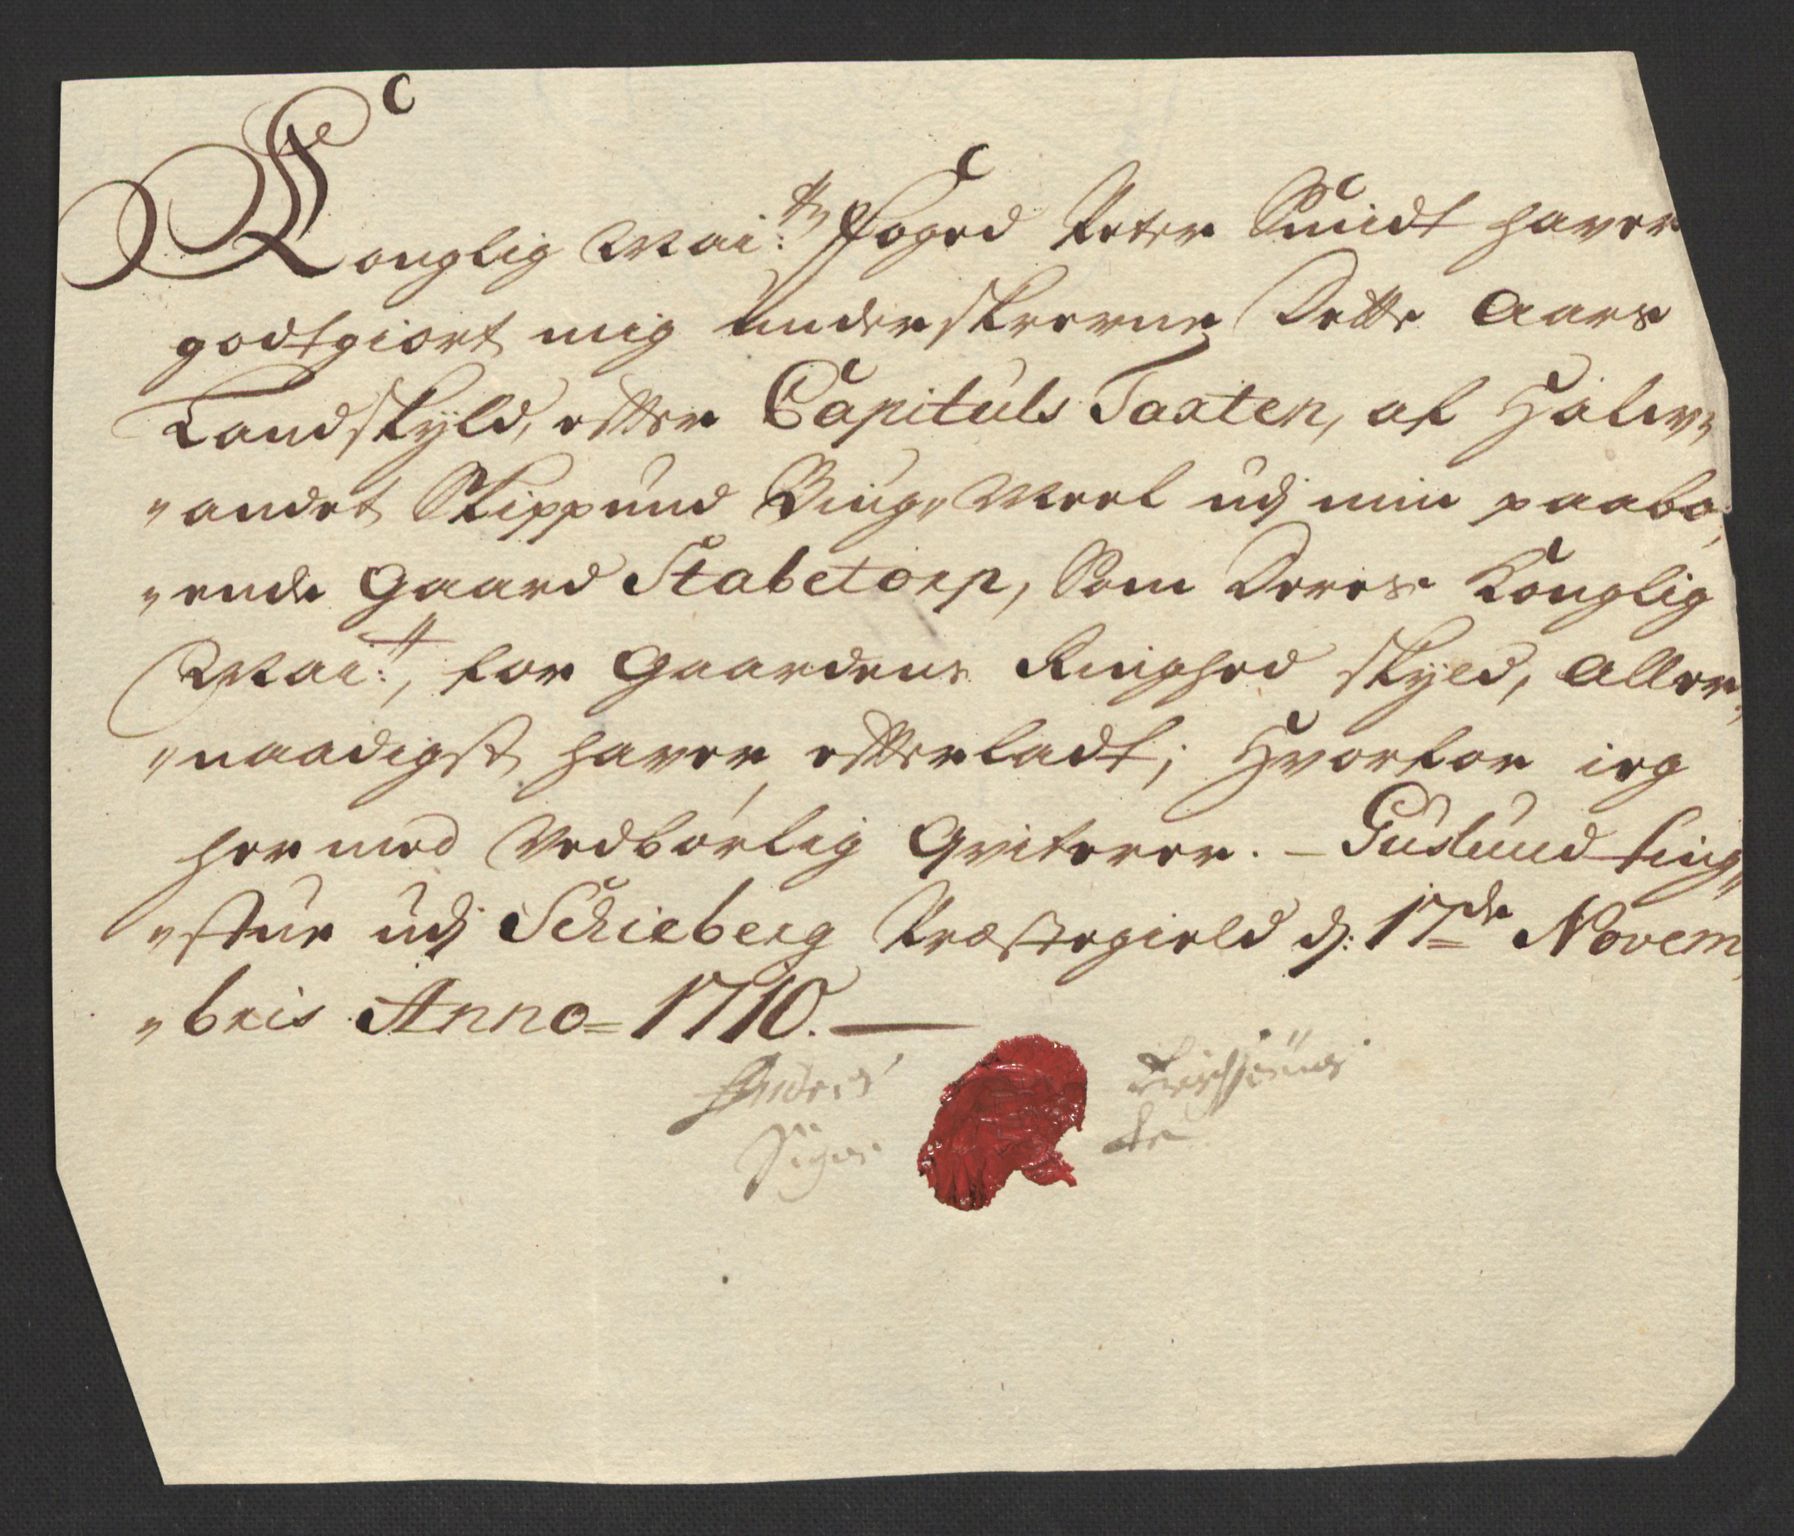 Konglig Mai:tz Foged Peter Smidt haver
godtgiort mig underskrevne Dette Aars
Landskyld, efter Capituls Taxten, af Halv-
-andet Skippund Biug-Meel udj min paabo-
-ende Gaard Stabetorp, Som Deres Konglig
Mai:tt, for Gaardens Ringhed skyld, Aller-
-naadigst haver efterladt; Hvorfor ieg
hermed Vedbørlig Qviterer. - Guslund ting-
-stue udj Schieberg Præstegield d: 17de Novem-
-bris Anno = 1710. —
Andres